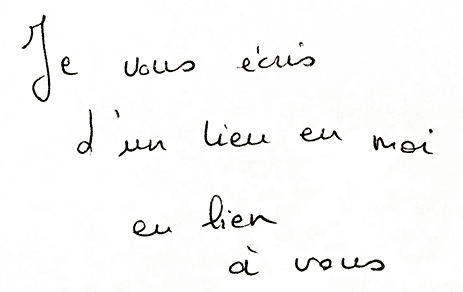 Je vous écris
d'un lieu en moi
en lien
à vous